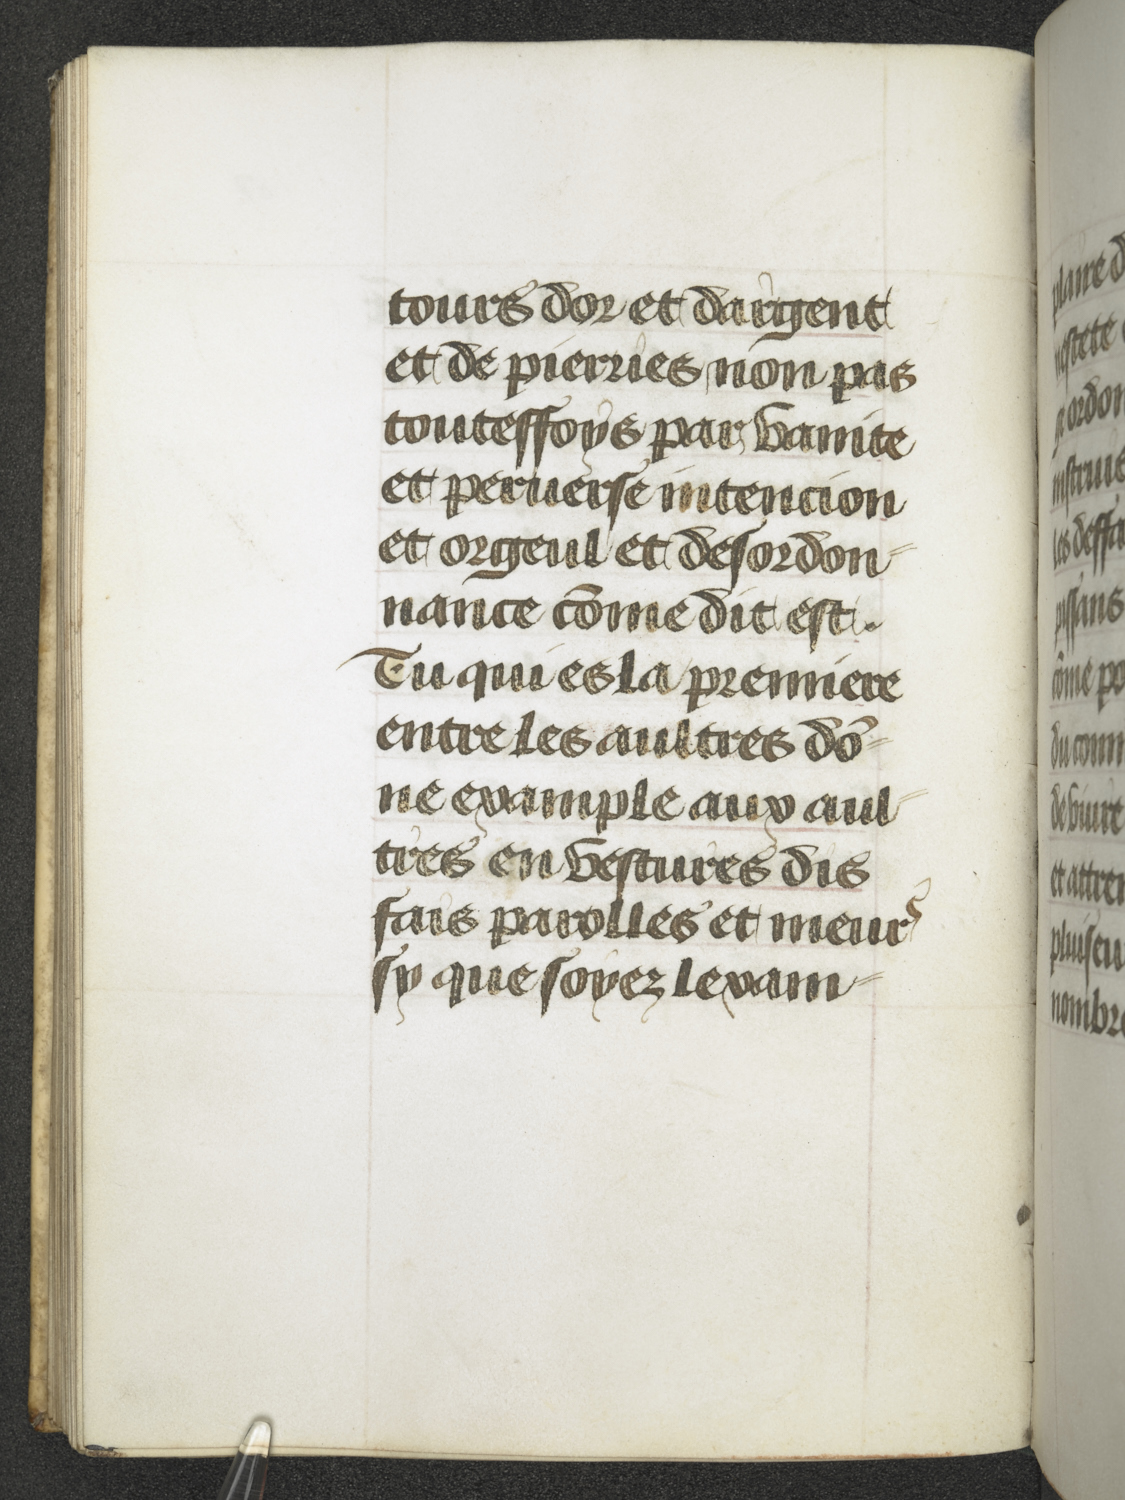 tours dor et dargent
et de pierries non pas
touteffoys par vanite
et peruerse intencion
et orgeul et desordon-
nance cōme dit est.
Tu qui es la premiere
entre les aultres dō-
ne example aux aul-
tres en vestures dis
fais parolles et meurs
sy que soyez lexam-
plaire d
nestete
ordon
instruit
les deffa
passans
cōme po
du comm
de viure
et attrem
pluiseu
nombre